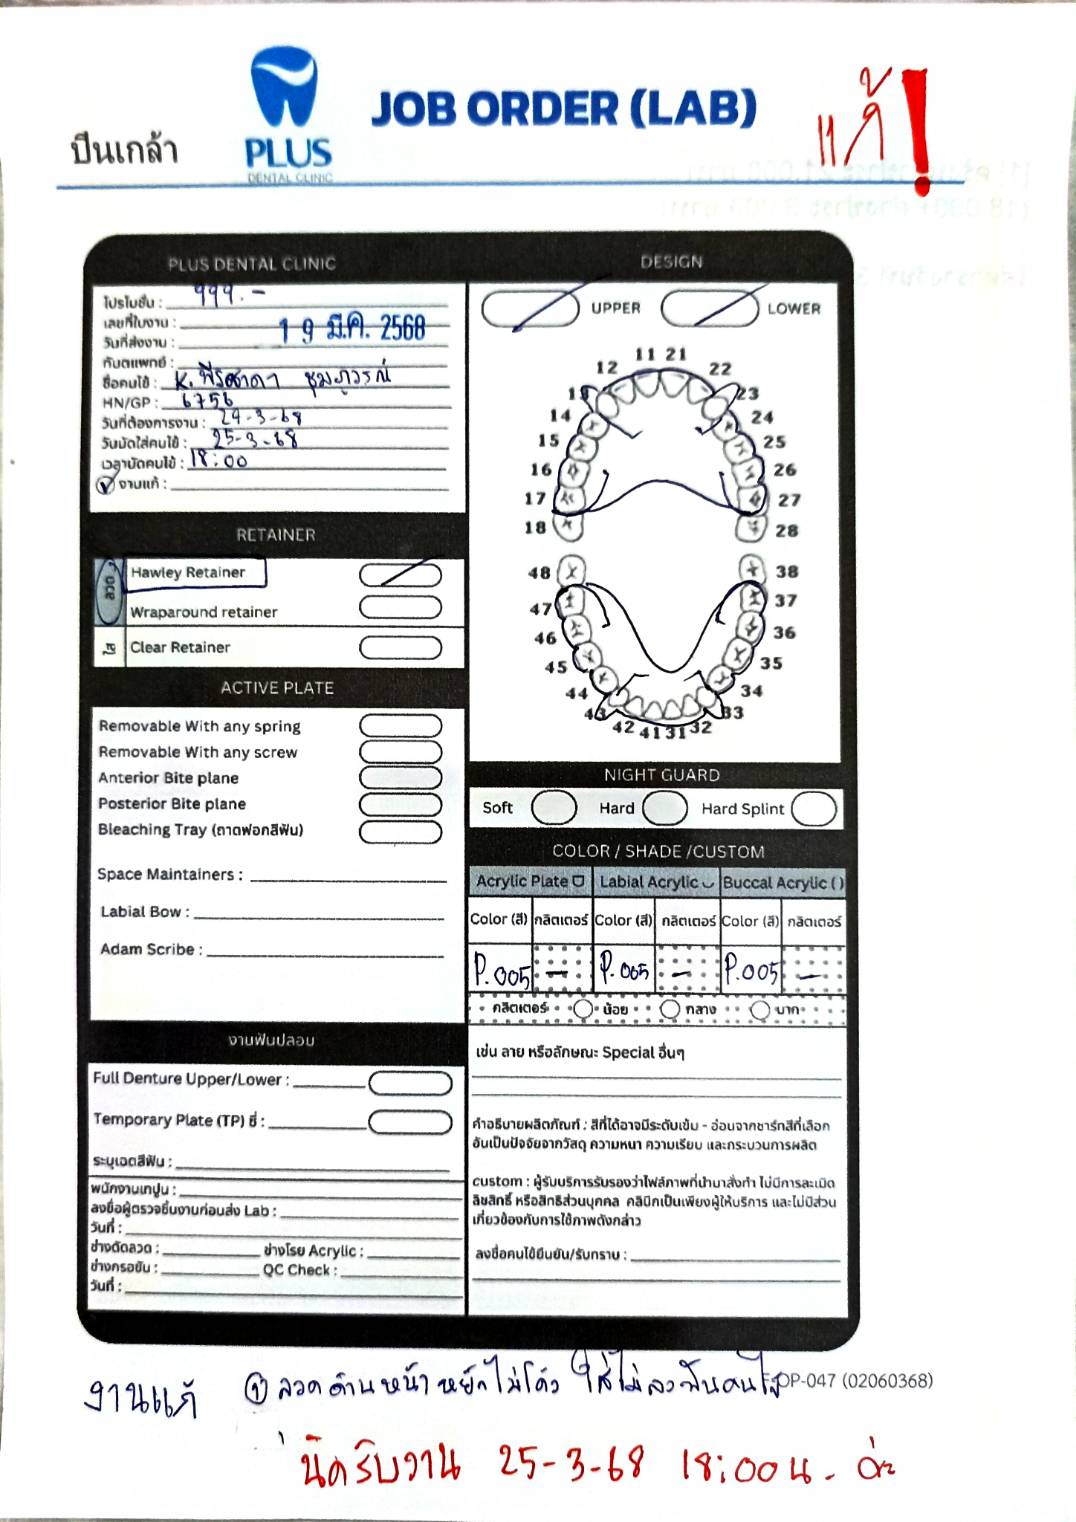 ปิ่นเกล้า
PLUS
DENTAL CLINIC
JOB ORDER (LAB)
แก้!
PLUS DENTAL CLINIC
โปรโมชั่น : 999.-
เลขที่ใบงาน :
วันที่ส่งงาน : 19 มี.ค. 2568
ทันตแพทย์ :
ชื่อคนไข้ : K.
HN/GP : 6756
วันที่ต้องการงาน : 24-3-68
วันนัดใส่คนไข้ : 25-3-68
เวลานัดคนไข้ : 18:00
งานแก้ :
RETAINER
ลวด
Hawley Retainer
Wraparound retainer
ใส
Clear Retainer
ACTIVE PLATE
Removable With any spring
Removable With any screw
Anterior Bite plane
Posterior Bite plane
Bleaching Tray (ถาดฟอกสีฟัน)
Space Maintainers :
Labial Bow :
Adam Scribe :
งานฟันปลอม
Full Denture Upper/Lower :
Temporary Plate (TP) ซี่ :
ระบุเฉดสีฟัน :
พนักงานเทปูน :
ลงชื่อผู้ตรวจชิ้นงานก่อนส่ง Lab :
วันที่ :
ช่างดัดลวด : ช่างโรย Acrylic :
ช่างกรอขัด : QC Check :
วันที่ :
DESIGN
UPPER LOWER
11 21
12 22
13 23
14 24
15 25
16 26
17 27
18 28
48 38
47 37
46 36
45 35
44 34
43 33
42 41 31 32
NIGHT GUARD
Soft Hard Hard Splint
COLOR / SHADE /CUSTOM
Acrylic Plate Labial Acrylic Buccal Acrylic ( )
Color (สี) กลิตเตอร์ Color (สี) กลิตเตอร์ Color (สี) กลิตเตอร์
P.005 — P.005 — P.005 —
กลิตเตอร์ น้อย กลาง มาก
เช่น ลาย หรือลักษณะ Special อื่นๆ
คำอธิบายผลิตภัณฑ์ : สีที่ได้อาจมีระดับเข้ม - อ่อนจากชาร์ทสีที่เลือก
อันเป็นปัจจัยจากวัสดุ ความหนา ความเรียบ และกระบวนการผลิต
custom : ผู้รับบริการรับรองว่าไฟล์ภาพที่นำมาสั่งทำ ไม่มีการละเมิด
ลิขสิทธิ์ หรือสิทธิส่วนบุคคล คลินิกเป็นเพียงผู้ให้บริการ และไม่มีส่วน
เกี่ยวข้องกับการใช้ภาพดังกล่าว
ลงชื่อคนไข้ยืนยัน/รับทราบ :
OP-047 (02060368)
งานแก้ ① ลวดด้านหน้าหยักไม่โค้ง ใส่ไม่ลงฟันคนไข้
นัดรับงาน 25-3-68 18:00น. ค่ะ